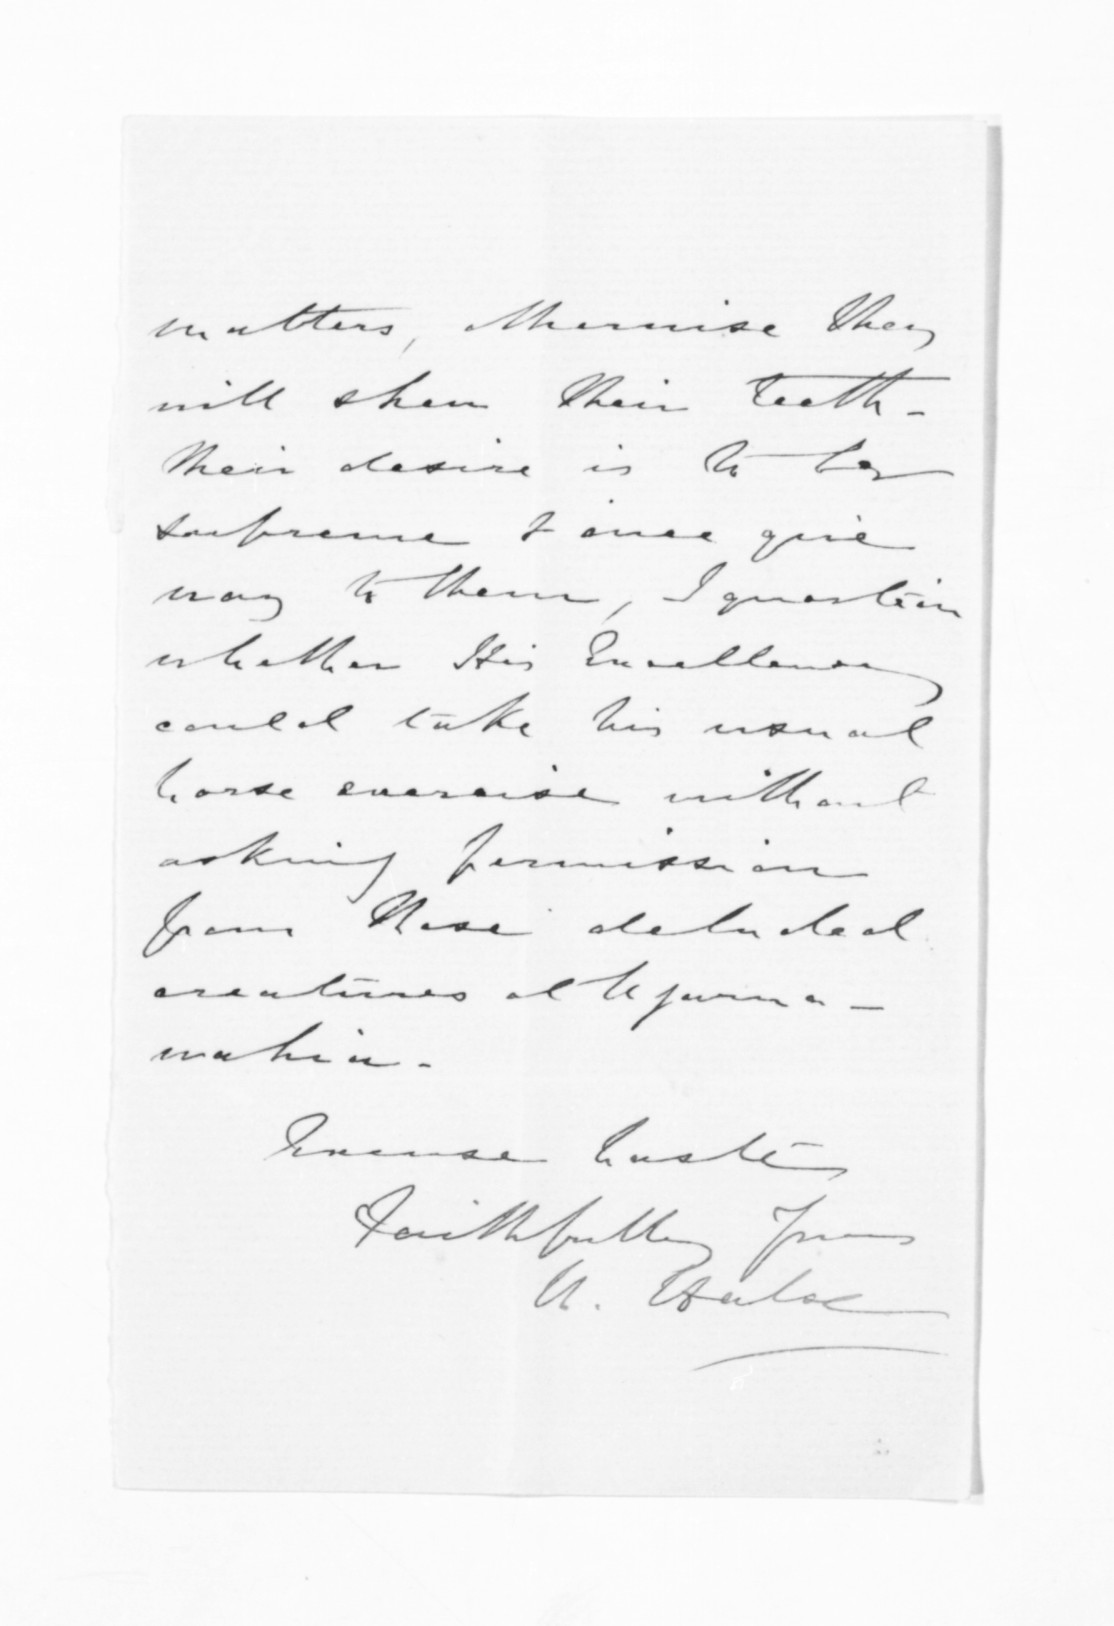 matters, otherwise they
will shew their teeth -
their desire is to be
supreme & once give
way to them, I question
whether His Excellency
could take his usual
horse exercise without
asking permission
from these deluded
creatures at Ngaruawahia -
wahia -
Excuse haste
Faithfully Yours
H. Halse